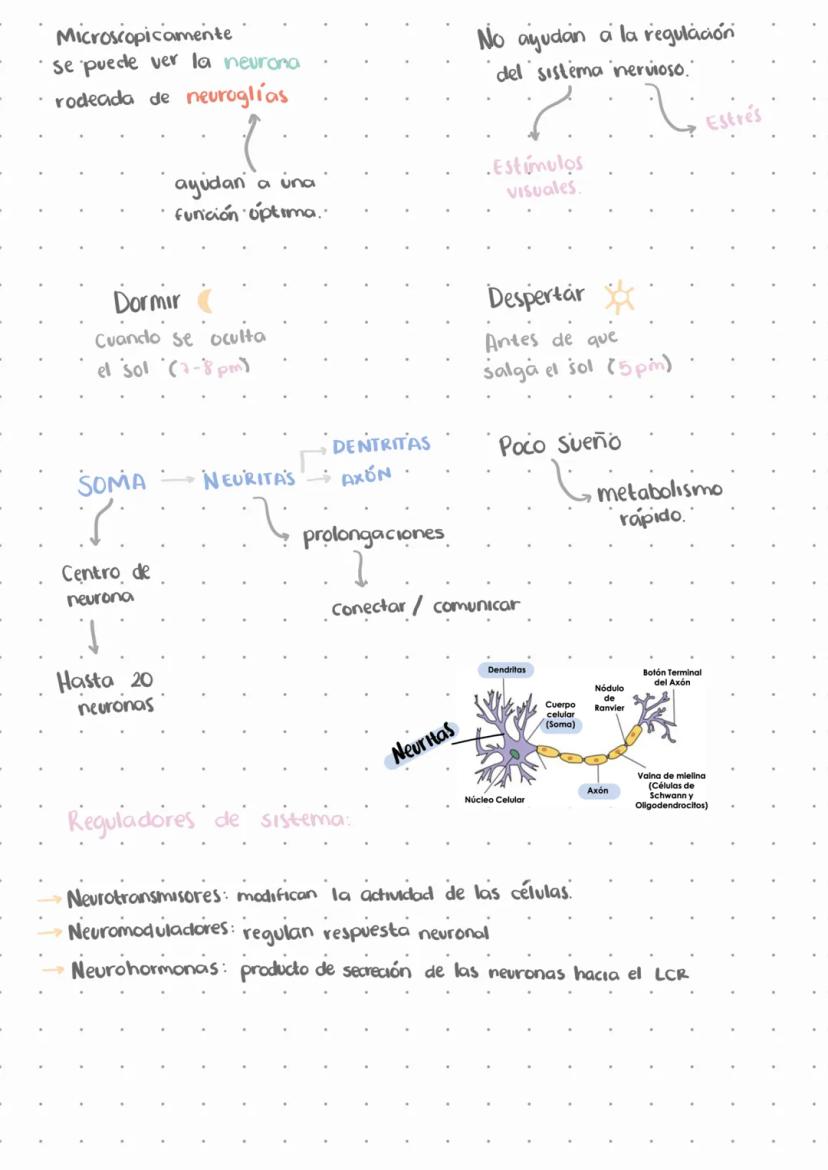 Microscopicamente
se puede ver la neurona
rodeada de neuroglías
ayudan a una
función óptima.
No ayudan a la regulación
del sistema nervioso.
Estrés
Estímulos
visuales.
Dormir
Cuando se oculta
el sol (7-8 pm)
Despertar
Antes de que
salga el sol (5pm)
SOMA NEURITAS DENTRITAS
AXÓN
prolongaciones
conectar / comunicar
Centro de
neurona
Hasta 20
neuronas
Poco sueño
metabolismo
rápido.
Neuritas
Dendritas
Cuerpo
celular
(Soma)
Nódulo
de
Ranvier
Botón Terminal
del Axón
Núcleo Celular
Axón
Vaina de mielina
(Células de
Schwann y
Oligodendrocitos)
Reguladores de sistema:
Neurotransmisores: modifican la actividad de las células.
Neuromoduladores: regulan respuesta neuronal
Neurohormonas: producto de secreción de las neuronas hacia el LCR